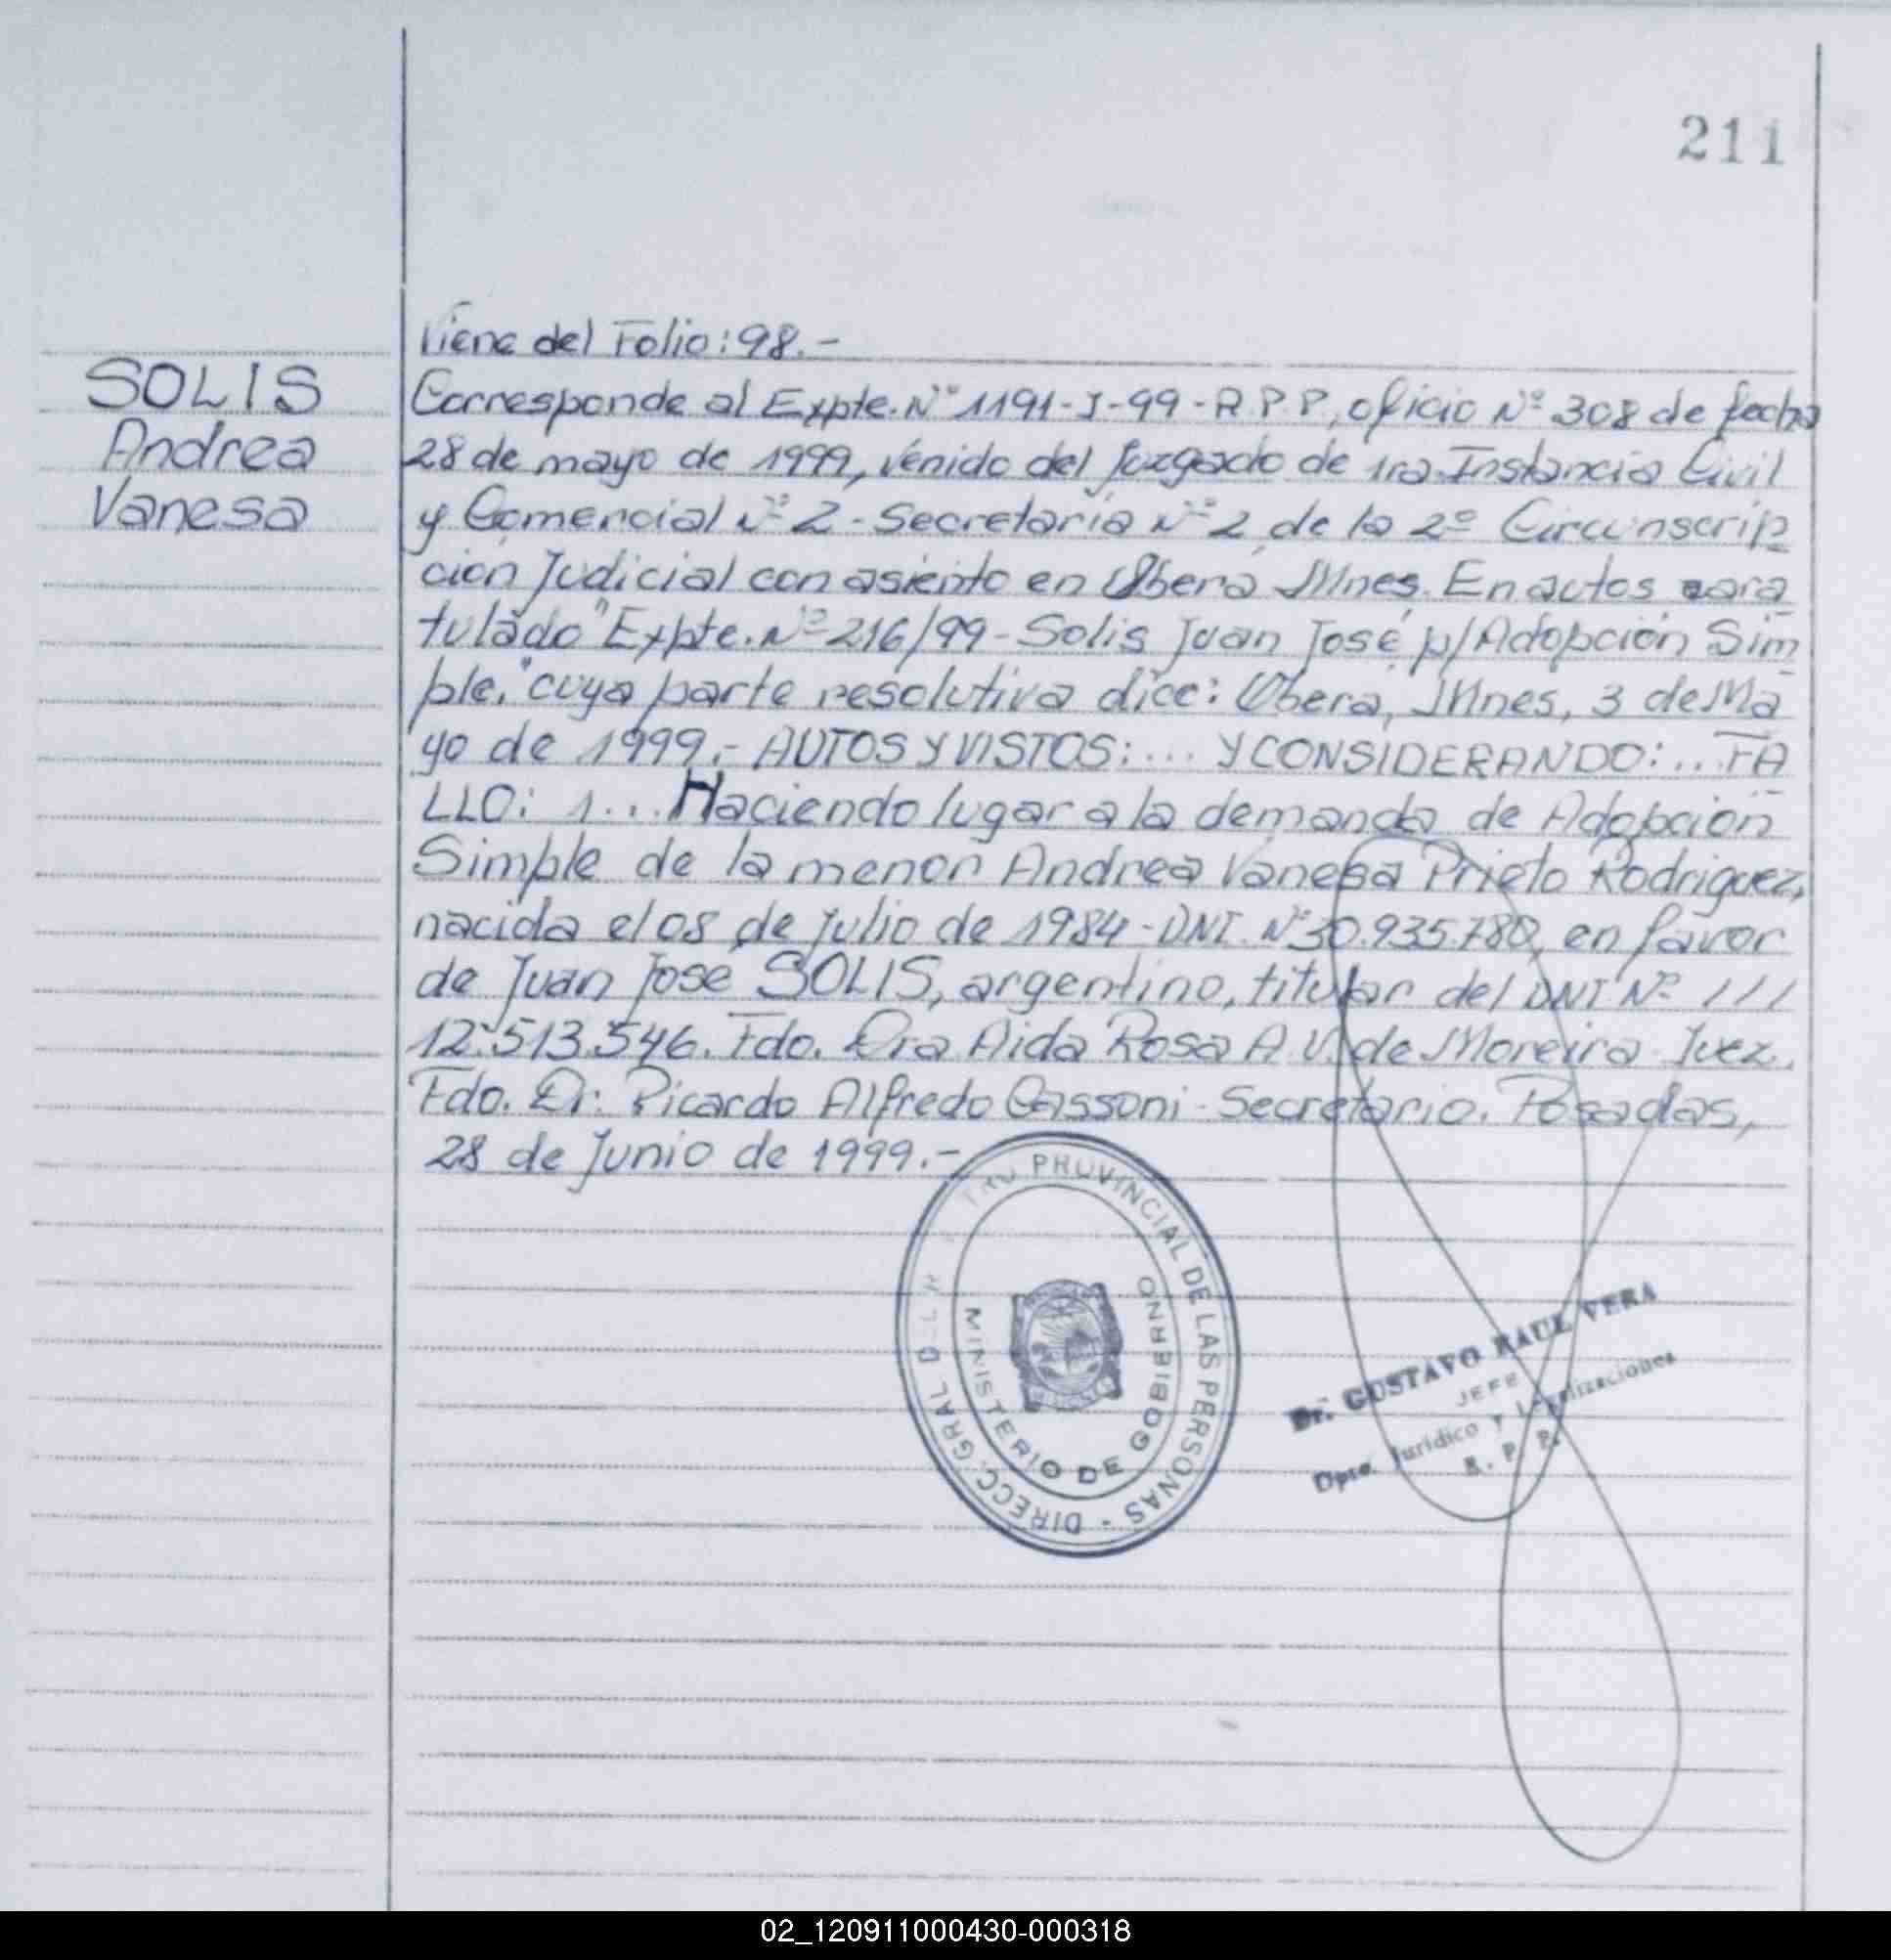 211
Viene del Folio: 98.-
SOLIS
Andrea
Vanesa
Corresponde al Expte. Nº 1191-J-99-R.P.P., oficio Nº 308 de fecha
28 de mayo de 1999, venido del Juzgado de 1ra Instancia Civil
y Comercial Nº 2 - Secretaría Nº 2, de la 2º Circunscrip
ción Judicial con asiento en Oberá Mnes. En autos cara
tulado "Expte. Nº 216/99 - Solis Juan José p/Adopción Sim
ple," cuya parte resolutiva dice: Oberá, Mnes, 3 de Ma
yo de 1999.- AUTOS Y VISTOS:... Y CONSIDERANDO:... FA
LLO: 1... Haciendo lugar a la demanda de Adopción
Simple de la menor Andrea Vanesa Prieto Rodriguez,
nacida el 08 de Julio de 1984 - DNI. Nº 30.935.780, en favor
de Juan José SOLIS, argentino, titular del DNI Nº ///
12.513.546. Fdo. Dra Aida Rosa A V. de Moreira - Juez.
Fdo. Dr. Ricardo Alfredo Cassoni - Secretario. Posadas,
28 de Junio de 1999.-
PROVINCIAL DE LAS PERSONAS - DIRECC. GRAL
MINISTERIO DE GOBIERNO
Dr. GUSTAVO RAUL VERA
JEFE
Dpto. Jurídico y Legalizaciones
R. P. P.
02_120911000430-000318